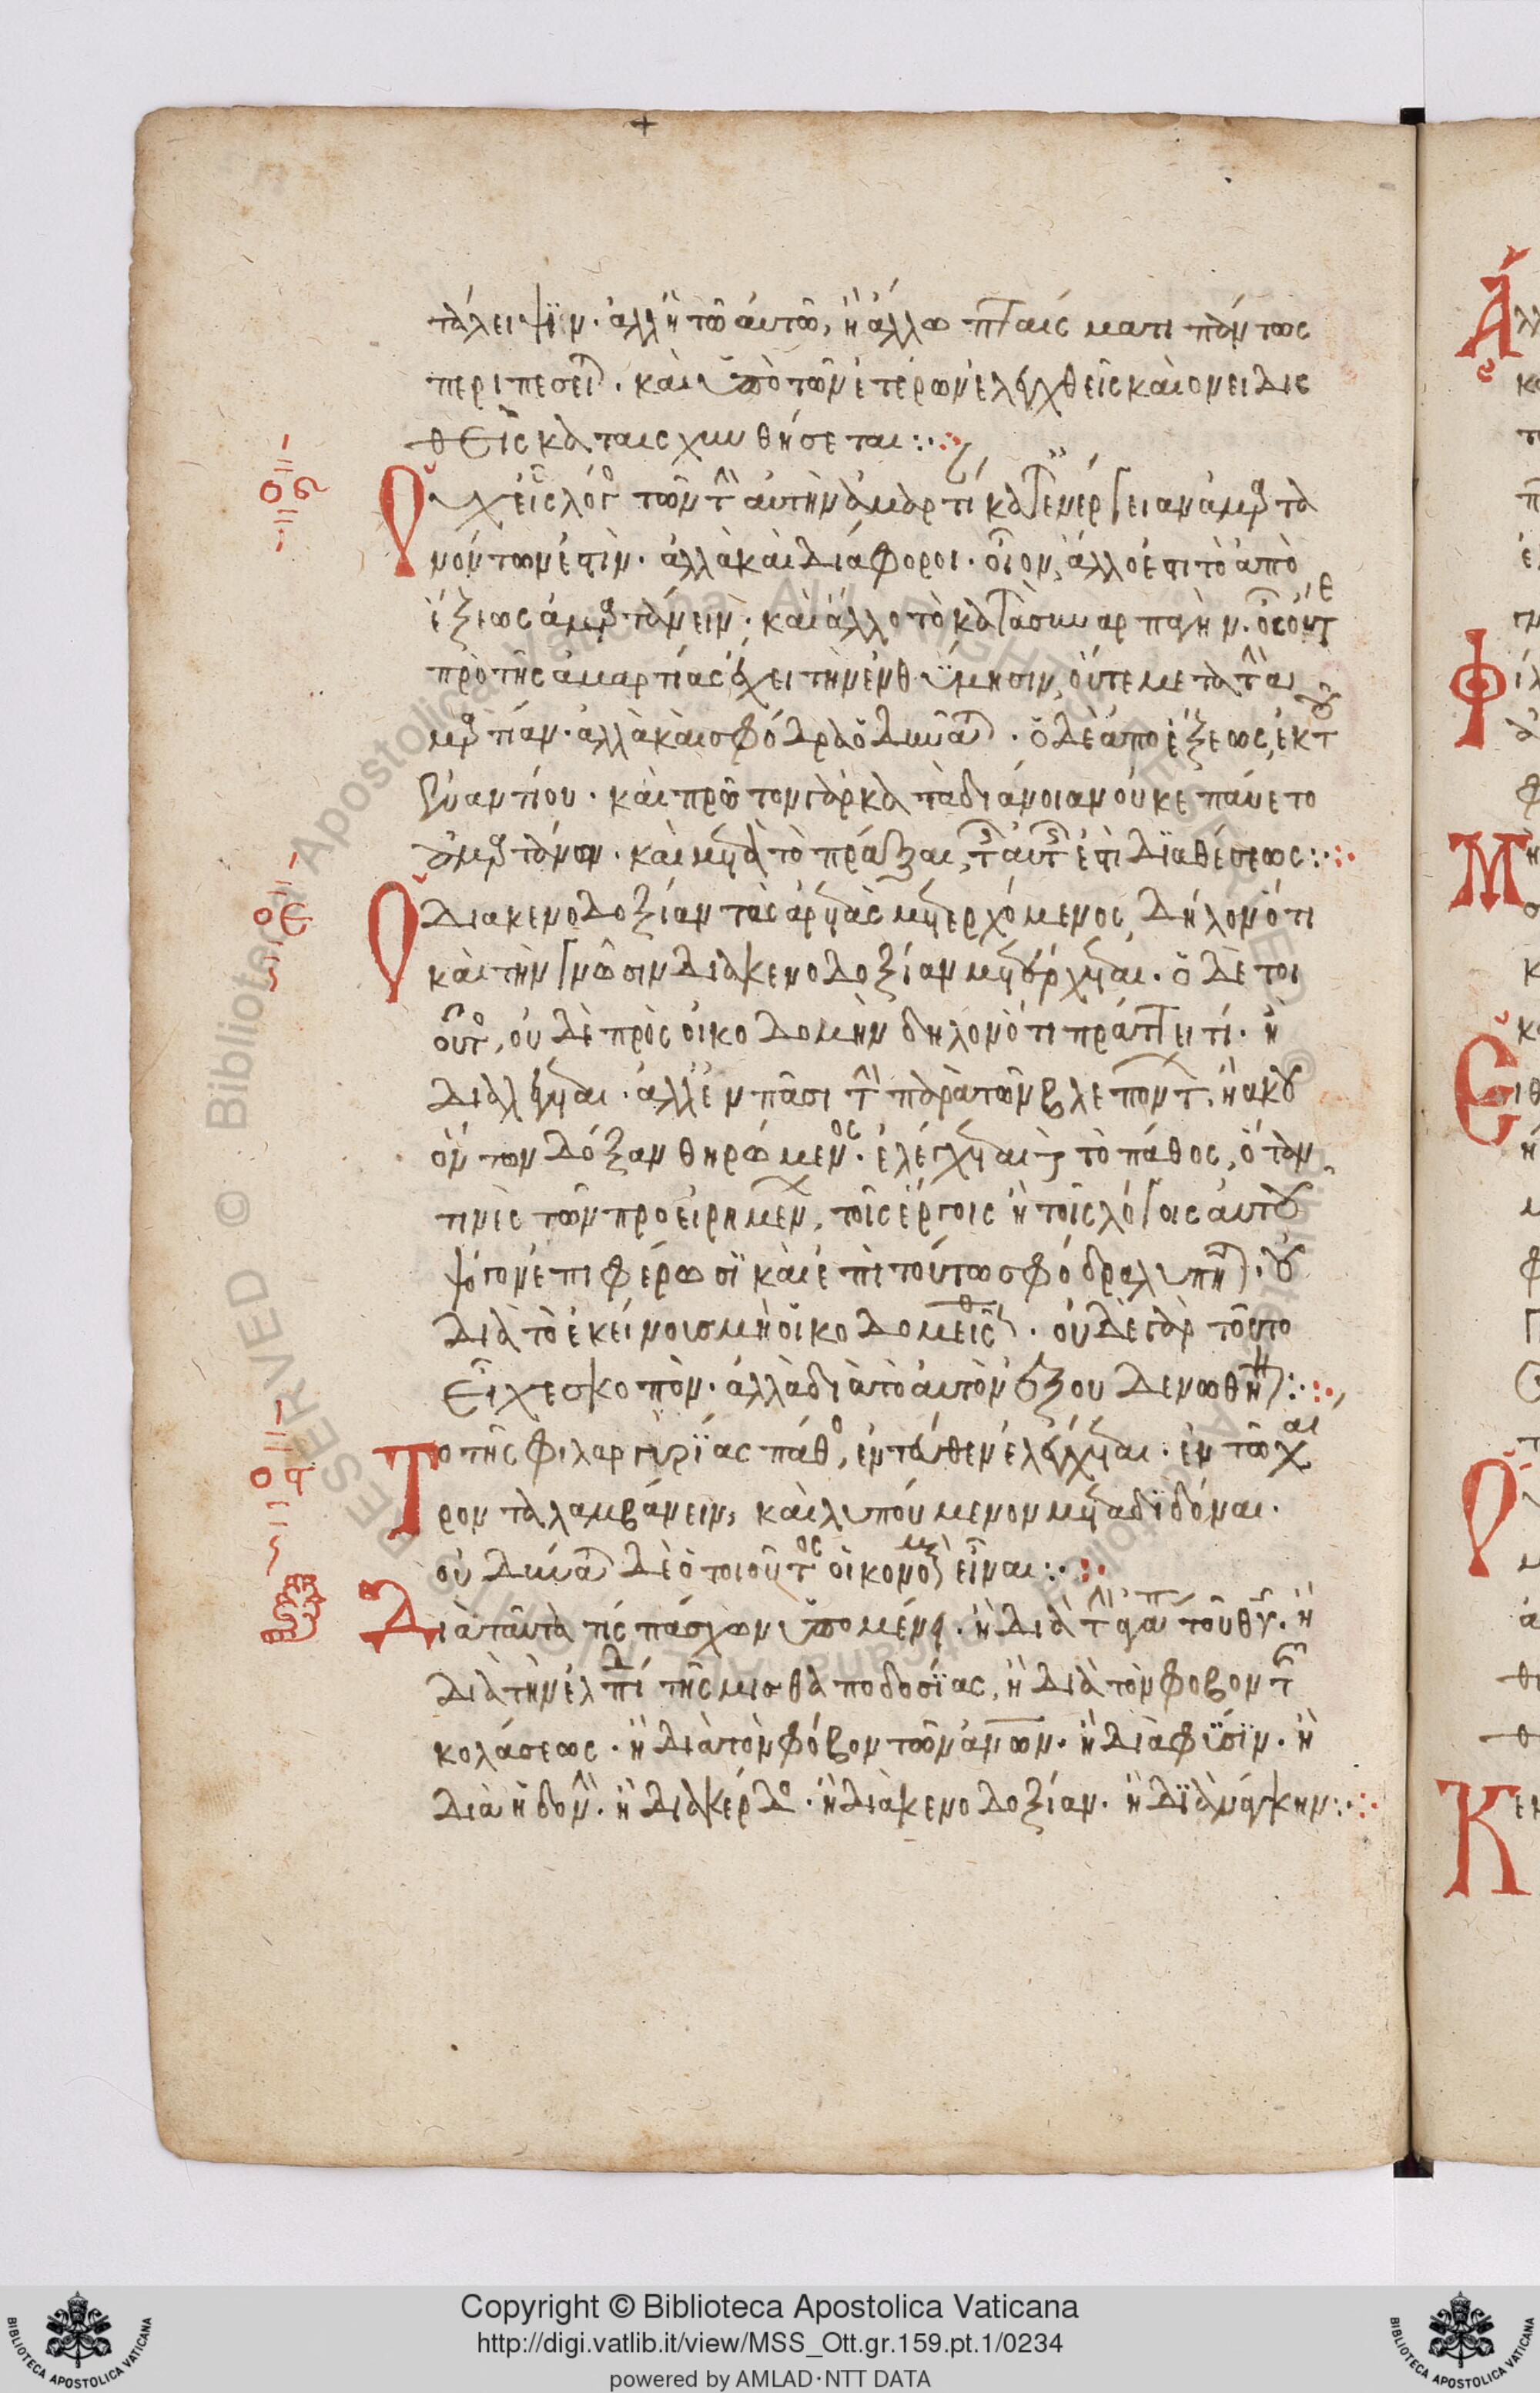 τάλειψϊν· ἀλλ' ἢ τῶ αὐτῶ, ἢ ἄλλω πταίσματι πάντως
περιπεσεῖ(ται)· καὶ ὑπὸ τῶν ἑτέρων ἐλεγχθεὶς καὶ ονειδισ
θεὶς καταισχυνθήσεται:·
οϛ
Οὐχ εἷς λόγο(ς) τῶν τ(ὴν) αὐτὴν ἁμαρτί(αν) κατ' ἐνέργειαν ἁμαρτα
νόντων ἐστὶν· ἀλλὰ καὶ διάφοροι· οἷον, ἄλλο ἐστὶ τὸ ἀπὸ
ἕξεως ἁμαρτάνειν· καὶ ἄλλο τὸ κατὰ συναρπαγὴν· ὃς οὔτ(ε)
πρὸ τῆς ἁμαρτίας εἶχει τὴν ἐνθύμησιν, οὔτε μετὰ τ(ὴν) ἁ
μαρτίαν· ἀλλὰ καὶ σφόδρα ὀδυνᾶ(ται)· ὁ δὲ ἀπο ἕξεως, ἐκ τοῦ
ἐναντίου· καὶ πρῶτον γὰρ κατα διάνοιαν οὐκ ἐπαύετο
ἁμαρτάνων· καὶ μετὰ τὸ πράξαι, τῆς αὐτῆς ἐστὶ διαθέσεως:·
οε
Ὁ διακενοδοξίαν τὰς ἀρετὰς μετερχόμενος, δήλον ὅτι
καὶ τὴν γνῶσιν διακενοδοξίαν μετέρχεται· ὁ δὲ τοι
οῦτο(ς), οὐδὲ πρὸς οἰκοδομὴν δηλονότι πράττει τί· ἢ
διαλέγεται· ἀλλ' ἐν πᾶσι τ(ὴν) παρὰ τῶν βλεπόντ(ων), ἢ ακου
όντων δόξαν θηρώμενος· ἐλέγχεται δὲ τὸ πάθος, ὅταν
τινὲς τῶν προειρημέν(ων), τοῖς ἔργοις ἢ τοῖς λόγοις αὐτοῦ
ψόγον ἐπιφέρωσϊ καὶ ἐπὶ τούτω σφόδρα λυπῆ(ται)· οὐ
διὰ τὸ ἐκείνους μὴ οἰκοδομεῖσθ(αι)· οὐδὲ γὰρ τοῦτο
εἶχε σκοπὸν· ἀλλὰ διὰ τὸ αυτὸν ἐξουδενωθῆ(ναι):·
οϟ
Το τῆς φιλαργυρίας πάθο(ς), ἐντεύθεν ἐλέγχεται· ἐν τῶ χαί
ροντα λαμβάνειν, καὶ λυπούμενον μεταδιδόναι·
οὐ δύνα(ται) δὲ ὁ τοιοῦτος οἰκονομι(κὸς) εἶναι:·
Διὰ ταῦτά τίς πάσχων ὑπομένει· ἢ διὰ τ(ὴν) ἀγάπ(ην) τοῦ θ(εο)ῦ· ἢ
διὰ τὴν ἐλπίδα τῆς μισθαποδοσίας, ἢ διὰ τὸν φοβον τῆς
κολάσεως· ἢ διὰ τὸν φόβον τῶν ἀν(θρώπ)ων· ἢ διὰ φύσϊν· ἢ
διὰ ἡδον(ὴν)· ἢ διὰ κέρδο(ς)· ἢ διὰ κενοδοξίαν· ἢ δϊ' ἀνάγκην:·
Copyright © Biblioteca Apostolica Vaticana
http://digi.vatlib.it/view/MSS_Ott.gr.159.pt.1/0234
powered by AMLAD·NTT DATA